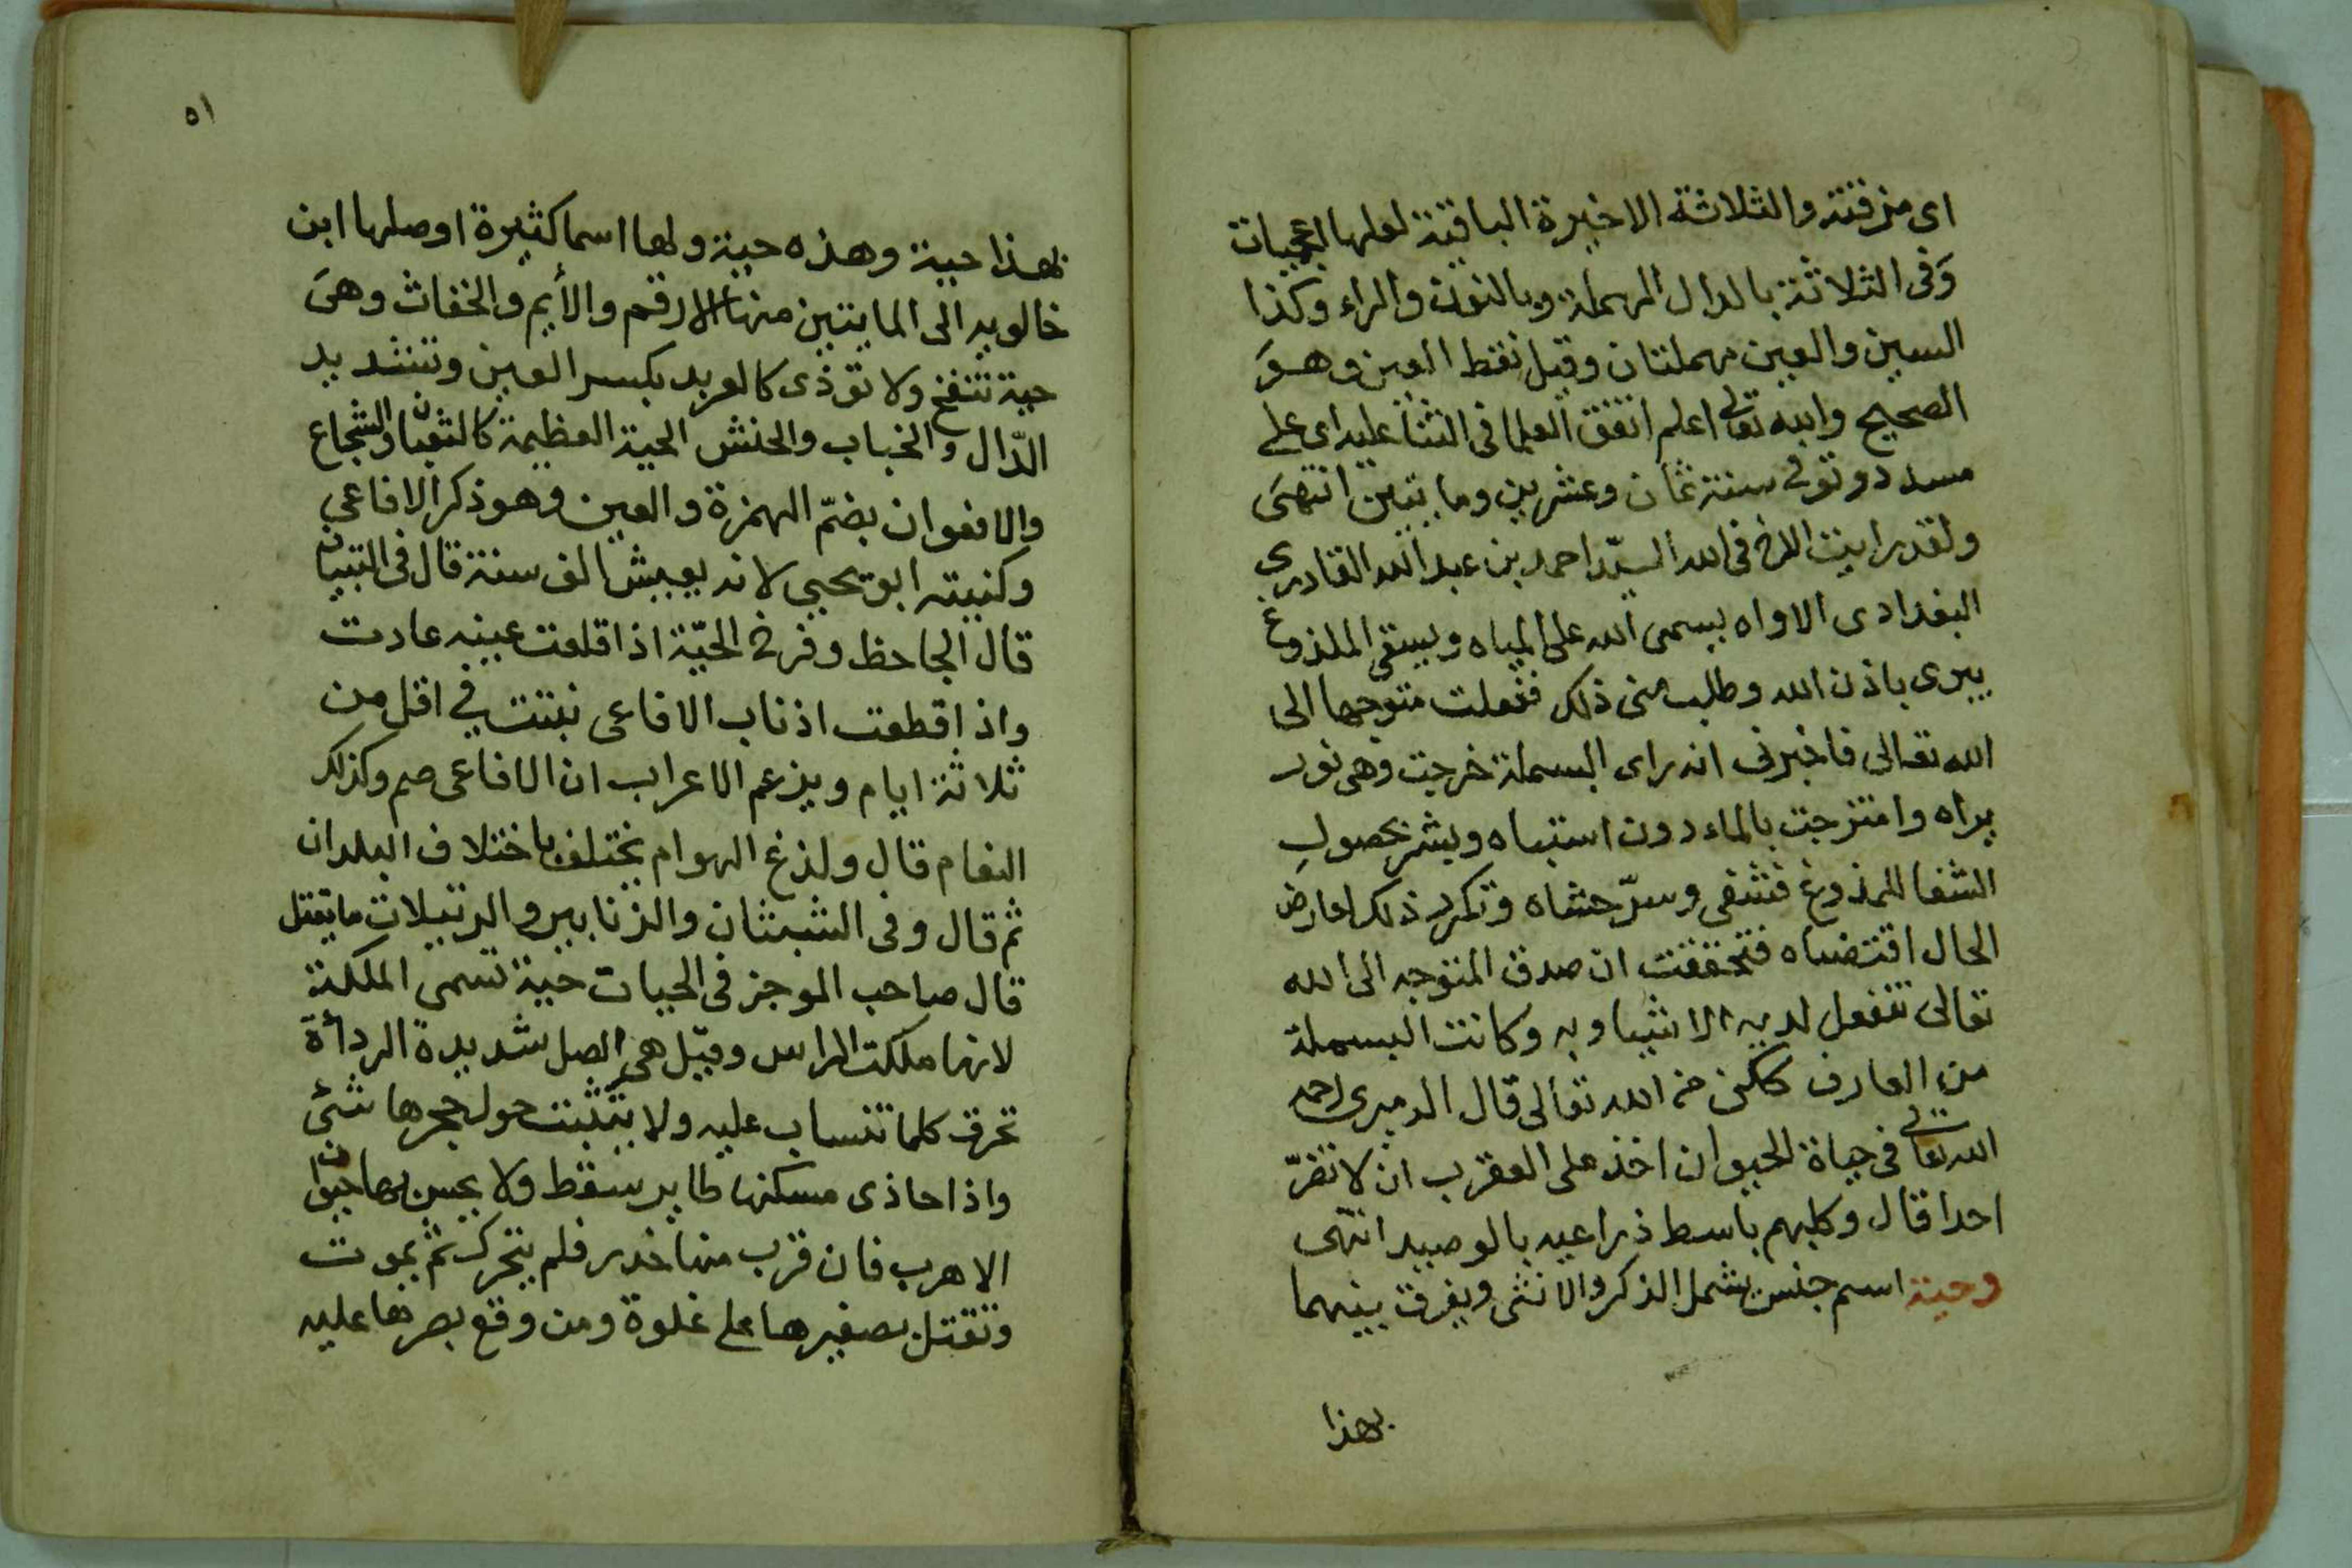 اى من رقته والثلاثة الاخيرة الباقية لعلها اعجميات
وَفى الثلاثة بالدال المهملة وبالنون والراء وكذا
السين والعين مهملتان وقيل نقط العين وهوَ
الصحيح والله تعالى اعلم اتفق العلما فى الثنا عليه اى على
مسدد وتوفى سنة ثمان وعشرين ومايتين انتهىَ
ولقد رايت الاخ فى الله السيّد احمد بن عبد الله القادرى
البغدادى الاواه يسمى الله على المياه ويسقى الملذوغ
يبرى باذن الله وطلب منى ذلك ففعلت متوجها الى
الله تعالى فاخبرنى انه راى البسملة خرجت وهى نور
يراه وامتزجت بالماء دون اشتباه وبشر بحصول
الشفا للملذوغ فشفى وسرّ حشاه وتكرر ذلك لعارض
الحال اقتضاه فتحققت ان صدق المتوجه الى الله
تعالى تنفعل لديه الاشيا وبه وكانت البسملة
من العارف ككن من الله تعالى قال الدميرى رحمه
الله تعالى فى حياة الحيوان اخذ على العقرب ان لا تضرّ
احدا قال وكلبهم باسط ذراعيه بالوصيد انتهى
وحية اسم جنس يشمل الذكر والانثى ويفرق بينهما
بهذا
٥١
بهذا حية وهذه حية ولها اسما كثيرة اوصلها ابن
خالويه الى المايتين منها الارقم والأيم والخفاث وهىَ
حية تنفخ ولا تؤذى كالعربد بكسر العين وتشديد
الدّال والخباب والحنش الحية العظيمة كالثعبان والشجاع
والافعوان بضمّ الهمزة والعين وهو ذكر الافاعى
وكنيته ابو يحيى لانه يعيش الف سنة قال فى التبيان
قال الجاحظ وفرخ الحيّة اذا قلعت عينه عادت
واذا قطعت اذناب الافاعى نبتت فى اقل من
ثلاثة ايام ويزعم الاعراب ان الافاعى صم وكذلك
النعام قال ولذغ الهوام يختلف باختلاف البلدان
ثم قال وفى الشبثان والزنابير والرتيلات ما يقتل
قال صاحب الموجز فى الحيات حية تسمى الملكة
لانها ملكت الراس وقيل هى الصل شديدة الردأة
تحرق كلما تنساب عليه ولا يتثبت حول حجرها شئ
واذا حاذى مسكنها طاير سقط ولا يحس بها حيوان
الا هرب فان قرب منها خدر فلم يتحرك ثم يموت
وتقتل بصفيرها على غلوة ومن وقع بصرها عليه